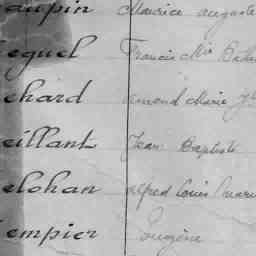 aupin Maurice auguste
equel Francis Mie
chard amand Marie
eillant Jean Baptiste
elohan alfred Louis mari
empier Eugène